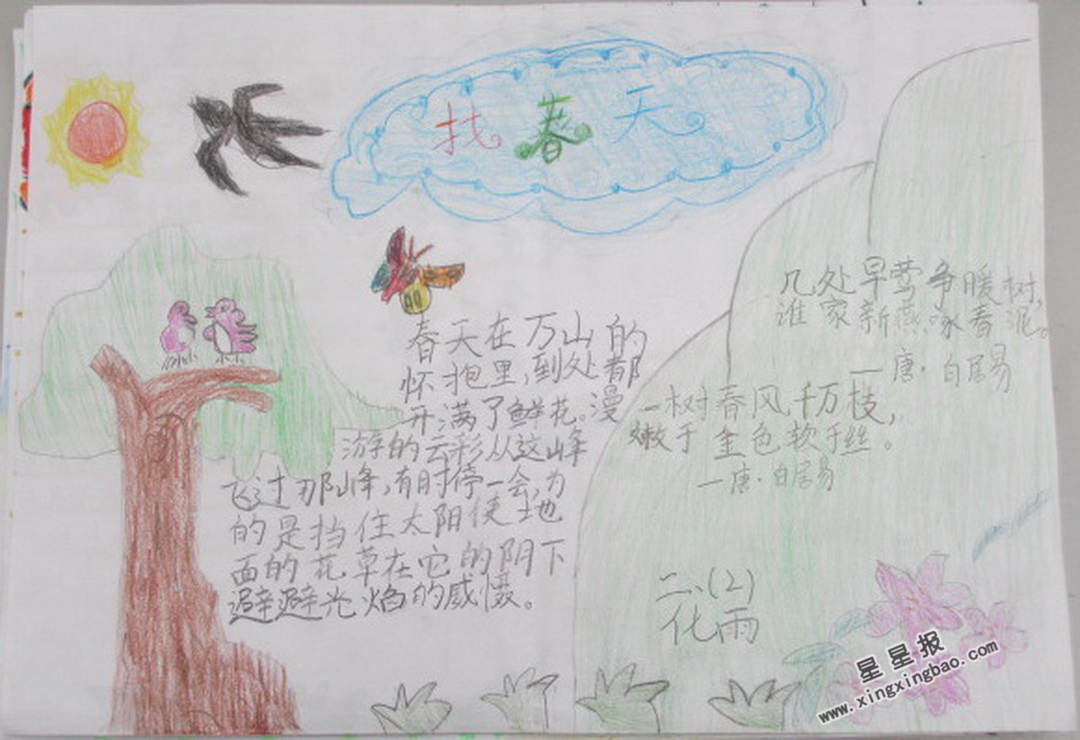 找春天
春天在万山的
怀抱里,到处都
开满了鲜花。漫
游的云彩从这峰
飞过那峰,有时停一会,为
的是挡住太阳使地
面的花草在它的阴下
避避光焰的威慑。
几处早莺争暖树,
谁家新燕啄春泥。
—唐·白居易
一树春风千万枝,
嫩于金色软于丝。
—唐·白居易
二、(2)
化雨
星星报
www.xingxingbao.com